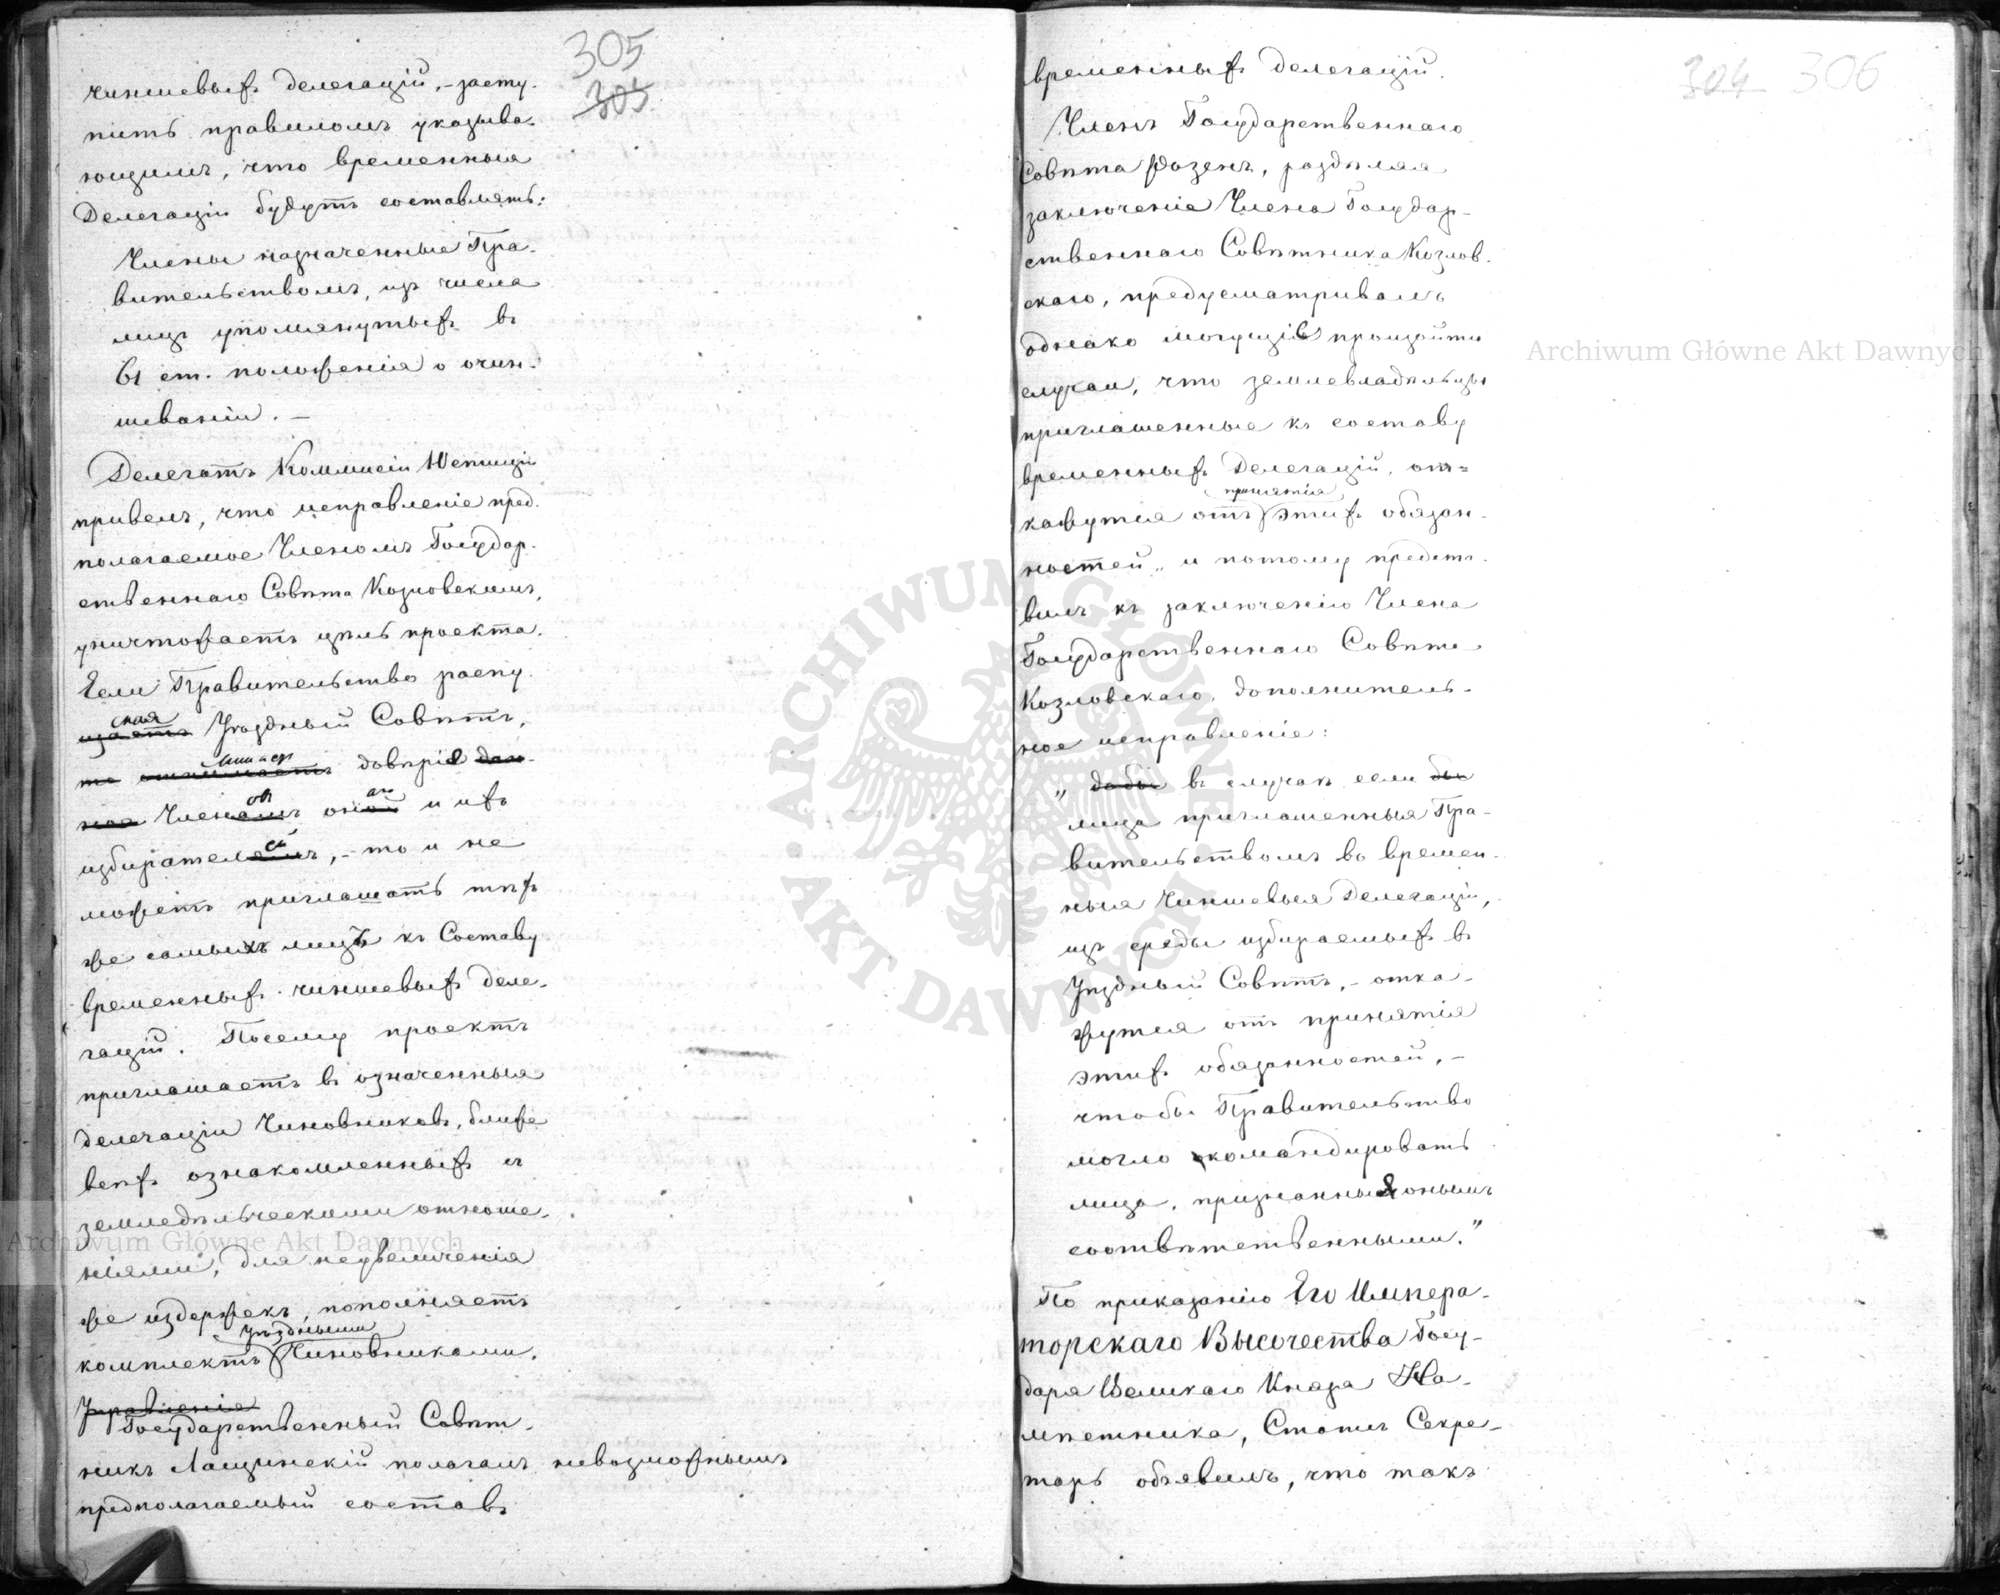 305
305
чиншевыхъ делегацій, – засту-
пить правиломъ указыва-
ющимъ, что временныя
Делегаціи будутъ составлять:
Члены назначенные Пра-
вительствомъ, изъ числа
лицъ упомянутыхъ въ
61 ст. положенія о очин-
шеваніи. –
Делегатъ Коммисіи Юстиціи
привелъ, что исправленіе пред-
полагаемое Членомъ Государ-
ственнаго Совѣта Козловскимъ,
уничтожаетъ цѣль проекта.
Если Правительство распу-
ская
щаетъ Уѣздный Совѣтъ,
лишаетъ
то отнимаетъ довѣрія дан-
овъ аго
ное Членамъ оной и ихъ
ей
избирателямъ, – то и не
можетъ приглашать тѣхъ
же самыхъ лицъ къ Составу
временныхъ чиншевыхъ деле-
гацій. Посему проектъ
приглашаетъ въ означенныя
делегаціи Чиновниковъ, ближе
всѣхъ ознакомленныхъ съ
земледѣльческими отноше-
ніями, для неувеличенія
же издержекъ, пополняетъ
Уѣздными
комплектъ Чиновниками.
Управленія
Государственный Совѣт-
никъ Лащинскій полагалъ невозможнымъ
предполагаемый составъ
304 306
временныхъ делегацій.
Членъ Государственнаго
Совѣта Розенъ, раздѣляя
заключеніе Члена Государ-
ственнаго Совѣтника Козлов-
скаго, предусматривалъ
однако могущіе произойти
случаи, что землевладѣльцы
приглашенные къ составу
временныхъ Делегацій, от-
принятія
кажутся отъ этихъ обязан-
ностей, и потому предста-
вилъ къ заключенію Члена
Государственнаго Совѣта
Козловскаго, дополнитель-
ное исправленіе:
„ дабы въ случаѣ если бы
лица приглашенныя Пра-
вительствомъ во времен-
ныя Чиншевыя Делегаціи,
изъ среды избираемыхъ въ
Уѣздный Совѣтъ, – отка-
жутся отъ принятія
этихъ обязанностей, –
чтобы Правительство
могло командировать
лица, признанныя онымъ
соотвѣтственными.“
По приказанію Его Импера-
торскаго Высочества Госу-
даря Великаго Князя На-
мѣстника, Статсъ Секре-
тарь объявилъ, что такъ
Archiwum Główne Akt Dawnych
Archiwum Główne Akt Dawnych
ARCHIWUM GŁÓWNE · AKT DAWNYCH ·